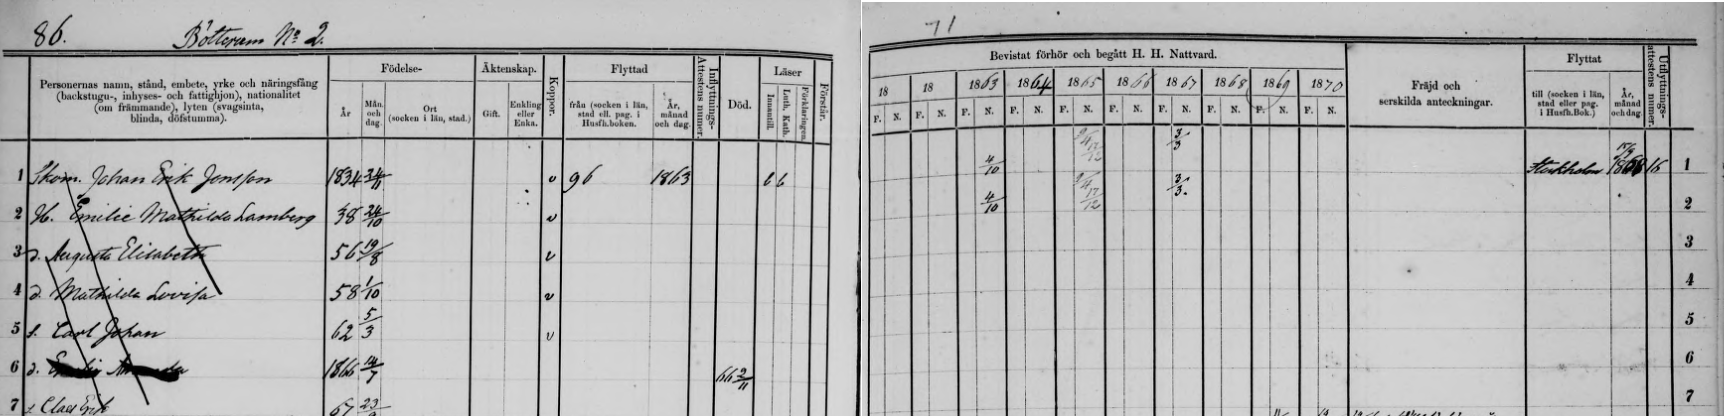 86.
Bötterum No 2.
71
Personernas namn, stånd, embete, yrke och näringsfång
(backstugu-, inhyses- och fattighjon), nationalitet
(om främmande), lyten (svagsinta,
blinda, döfstumma).
Födelse-
År
Mån.
och
dag.
Ort
(socken i län, stad.)
Äktenskap.
Gift.
Enkling
eller
Enka.
Koppor.
Flyttad
från (socken i län,
stad ell. pag. i
Husfh.boken.
År,
månad
och dag.
Inflyttnings-
Attestens numer.
Död.
Läser
Innantill.
Luth. Kath.
Förklaringen.
Förstår.
Bevistat förhör och begått H. H. Nattvard.
18 18 1863 1864 1865 1866 1867 1868 1869 1870
F. N. F. N. F. N. F. N. F. N. F. N. F. N. F. N. F. N. F. N.
Fräjd och
serskilda anteckningar.
Flyttat
till (socken i län,
stad eller pag.
i Husfh.Bok.)
År,
månad
och dag.
Utflyttnings-
attestens numer.
1 Skom. Johan Erik Jonsson 1834 24/11 v 96 1863 6 6 4/10 3/3 Stockholm 1868 16 1
2 H. Emilie Mathilda Lamberg 38 24/10 v 4/10 3/3 2
3 d. Augusta Elisabeth 56 19/8 v 3
4 d. Mathilda Lovisa 58 1/10 v 4
5 s. Carl Johan 62 5/3 v 5
6 d. 1866 14/7 66 2/11 6
7 s. Claes Erik 67 23 7